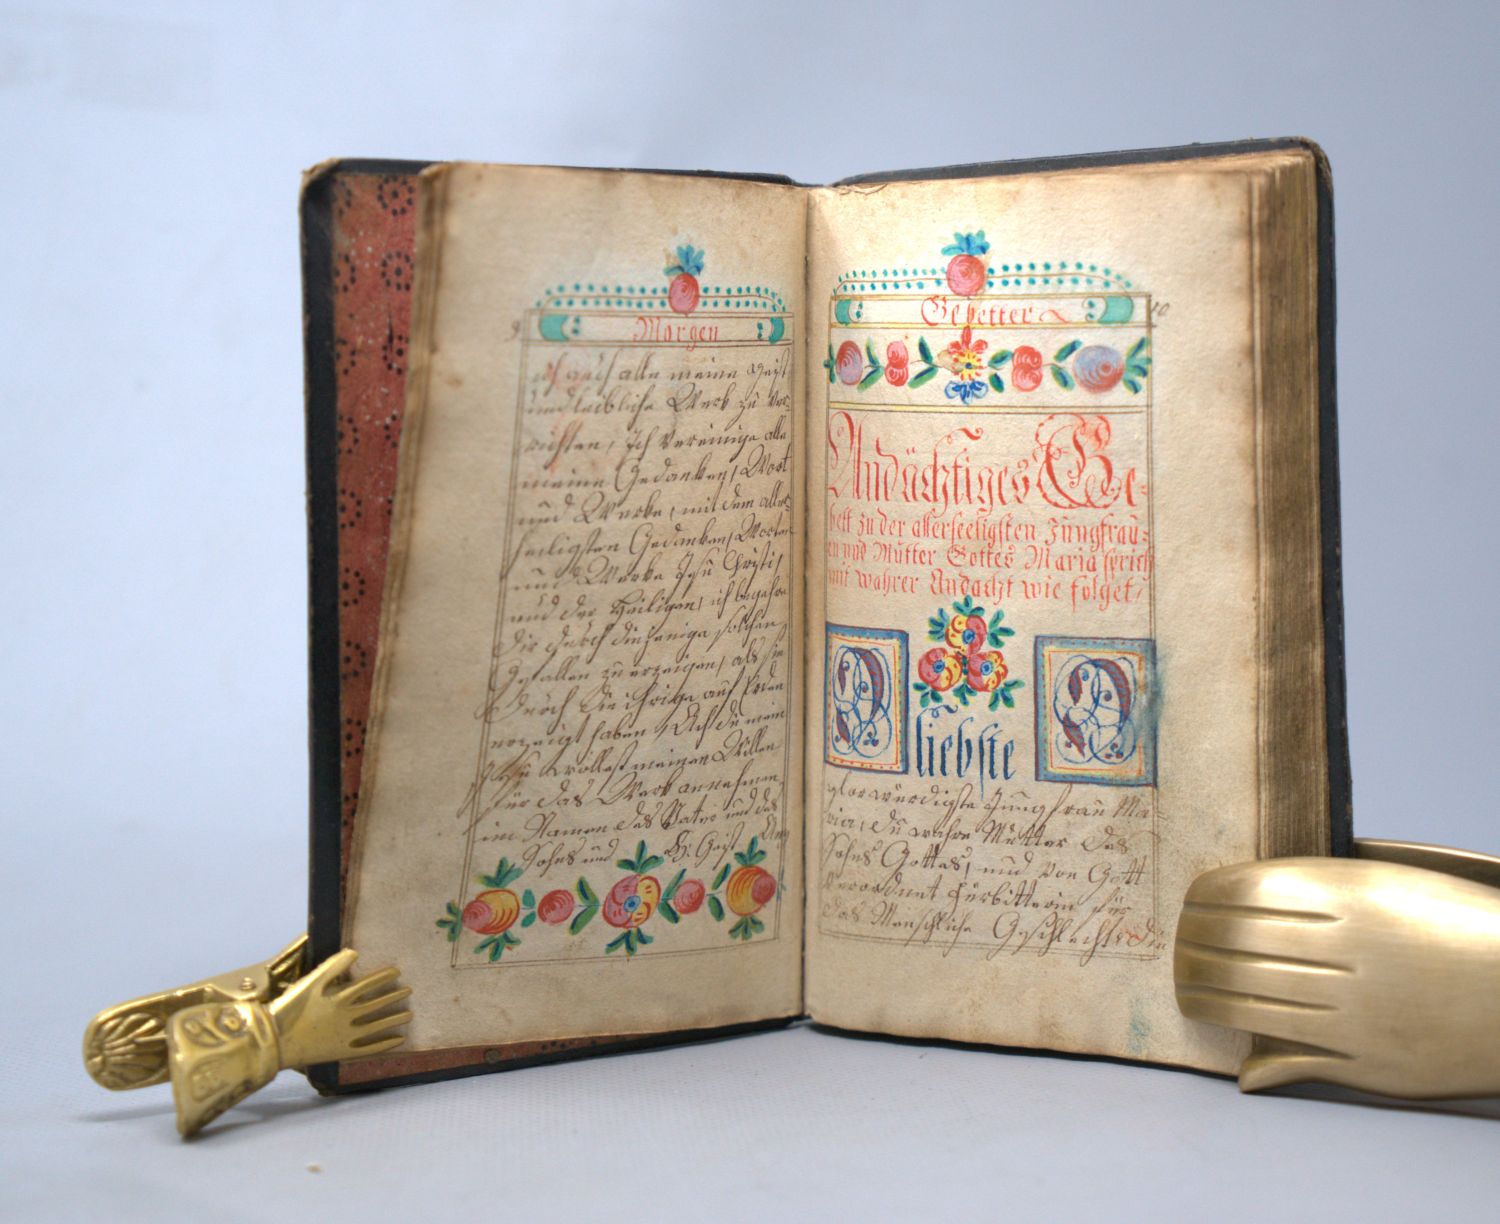 9
Morgen
ich auch alle meine Geist
und leibliche Werk zu ver=
richten, Ich vereinige alle
meine Gedanken, Wort
und Werke, mit dem aller=
heiligsten Gedanken, Worten
und Werke Jesu Christi,
und der Heiligen, ich begehre
dir durch diejenige solchen
Gefallen zu erzeigen, als sie
durch die ihrige auf Erden
erzeigt haben, Ach du mein
Jesu wollest meinen Willen
für das Werk annehmen,
im Namen des Vater und des
Sohns und H: Geist
10
Gebetter
Andächtiges Ge=
bett zu der allerseeligsten Jüngfraü=
en und Mütter Gottes Maria sprich
mit wahrer Andacht wie folget,
O liebste O
glorwürdigste Jüngfraü Ma=
ria, dü wahre Mütter des
Sohns Gottes, ünd von Gott
verordnet fürbitterin für
das Menschliche Geschlecht, die